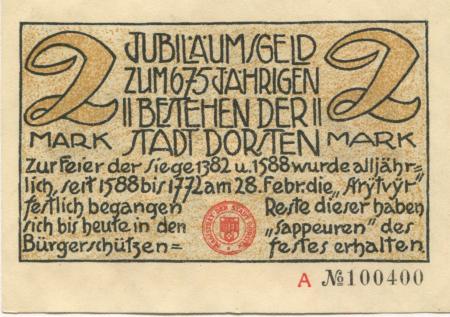 2 JUBILÄUMSGELD 2
ZUM 675 JÄHRIGEN
BESTEHEN DER
MARK STADT DORSTEN MARK
Zur Feier der Siege 1382 u. 1588 wurde alljähr=
lich, seit 1588 bis 1772 am 28. Febr. die „Arÿtvÿr"
festlich begangen Reste dieser haben
sich bis heute in den „Sappeuren" des
Bürgerschützen= festes erhalten.
A № 100400